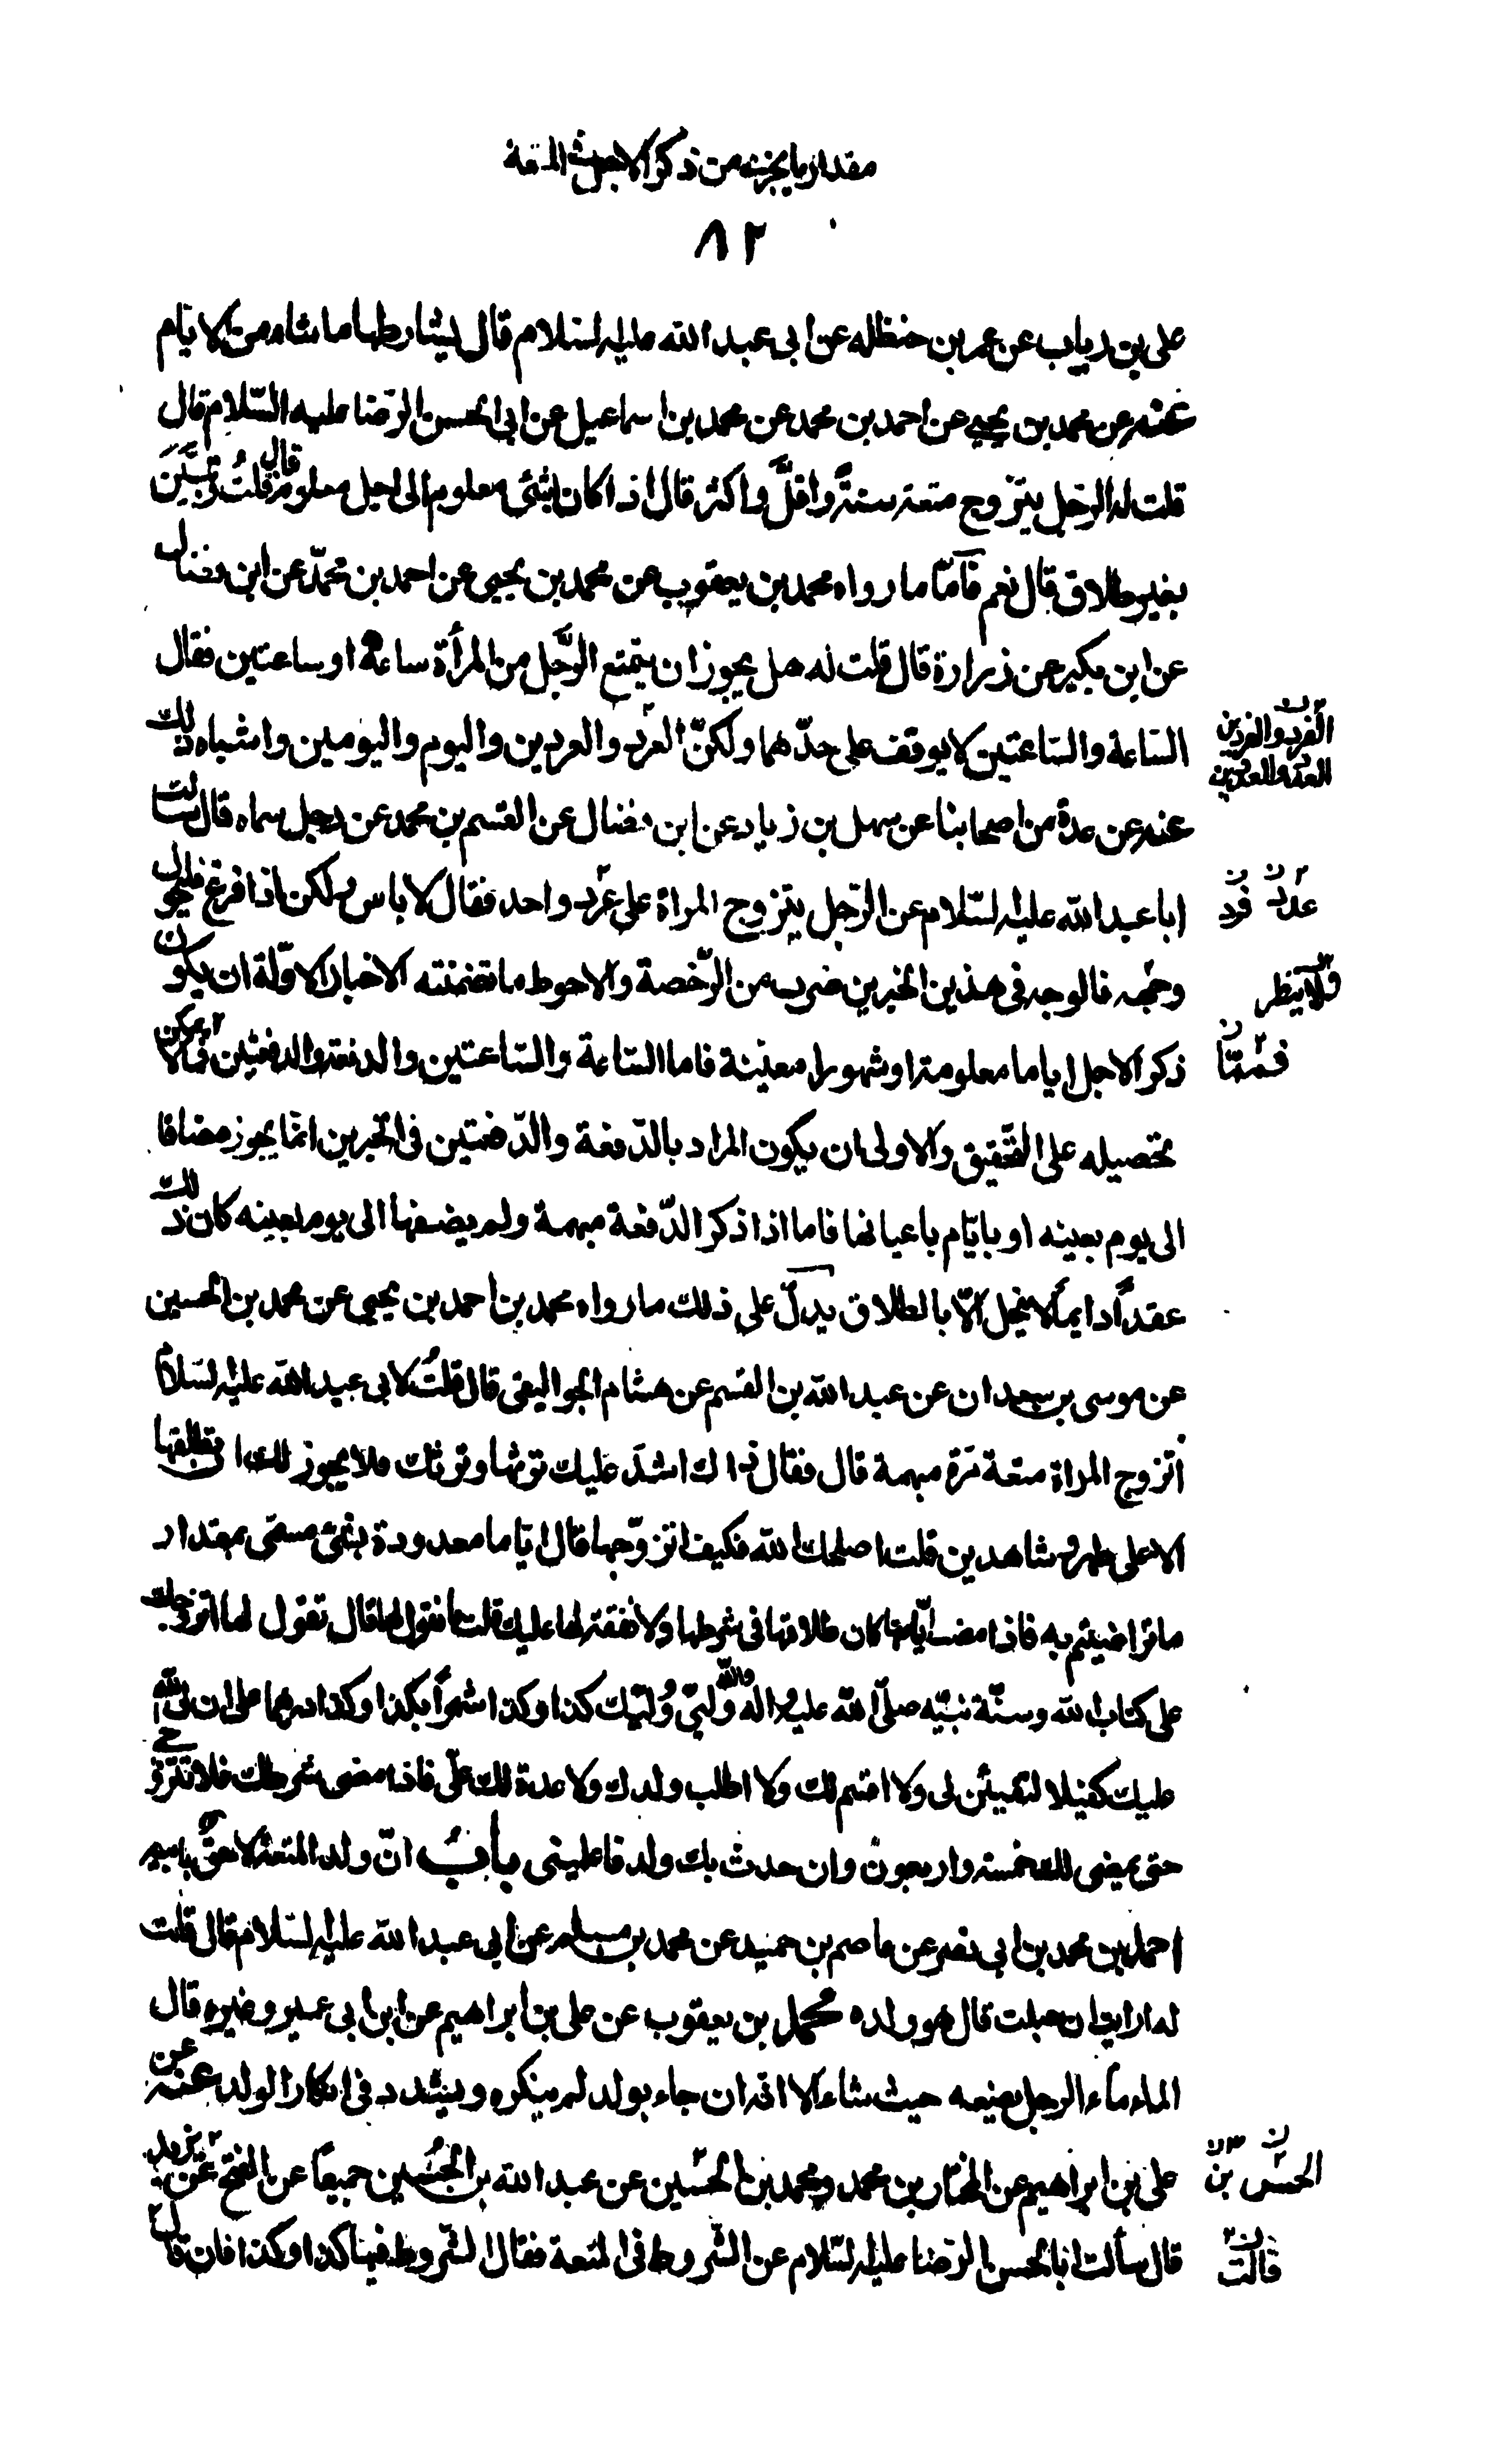 مقدار ما يجزيه من ذكر الاجل فى المتعة
٨٢
على بن رياب عن عمر بن حنظله عن ابى عبد الله عليه السلام قال يشارطها ما شاء من الايّام
عنه عن محمد بن يحيى عن احمد بن محمد عن محمد بن اسماعيل عن ابى الحسن الرّضا عليه السّلام قال
قلت له الرّجل يتزوج متعة سنةً او اقلَّ واكثر قال اذا كان بشئ معلوم الى اجل معلوم قال قلتُ وتبين
بغير طلاق قال نعم فامّا ما رواه محمد بن يعقوب عن محمد بن يحيى عن احمد بن محمّد عن ابن فضال
عن ابن بكير عن زرارة قال قلت له هل يجوز ان يتمتع الرَّجل من المرأة ساعة او ساعتين فقال
السّاعة والسّاعتين لا يوقف على حدّهما ولكنّ العرد والعردين واليوم واليومين واشباه ذلك
الفرد والفردين
العدد والعددين
عنه عن عدة من اصحابنا عن سهل بن زياد عن ابن فضال عن القسم بن محمد عن رجل سماه قال سالت
ابا عبد الله عليه السّلام عن الرّجل يتزوج المراة على عرد واحد فقال لا باس ولكن اذا فرغ فليحول
عدد فرد
وجهه فالوجه فى هذين الخبرين ضرب من الرّخصة والاحوط ما تضمنته الاخبار الاوّلة ان يكون
فلا ينظر
ذكر الاجل اياما معلومة او شهورا معيّنة فاما السّاعة والسّاعتين والدفعة والدفعتين فما لا يمكن
فممّا
تحصيله على التّحقيق والاولى ان يكون المراد بالدّفعة والدّفعتين فى الخبرين انّما يجوز مضافا
الى يوم بعينه او بايّام باعيانها فاما اذا ذكر الدّفعة مبهمة ولم يضفها الى يوم بعينه كان ذلك
عقداً دايماً لا ينحل الّا بالطلاق يدلّ على ذلك ما رواه محمد بن احمد بن يحيى عن محمد بن الحسين
عن موسى بن سعدان عن عبد الله بن القسم عن هشام الجواليقى قال قلتُ لابى عبد الله عليه السّلام
اتزوج المراة متعة مَرّة مبهمة قال فقال ذاك اشدّ عليك ترثها وترثك فلا يجوز لك ان تطلقها
الا على طهر وشاهدين قلت اصلحك الله فكيف اتزوّجها قال ايّاما معدودة بشئ مسمّى بمقدار
ما تراضيتم به فاذا مضت ايّامها كان طلاقها فى شرطها ولا نفقة لها عليك قلت ما اقول لها قال تقول لها اتزوجك
على كتاب الله وسنّة نبيّه صلّى الله عليه واله والله وليّى ووليّك كذا وكذا شهراً بكذا وكذا درهما على ان لى الله
عليك كفيلا لتفيئن لى ولا اقسم لك ولا اطلب ولدك ولا عدة لك علىّ فاذا مضى شرطك فلا تتزوجى
حتى يمضى لك خمسة واربعون وان حدث بك ولد فاعلمينى باب انّ ولد المتعة لاحقٌ بابيه
احمد بن محمد بن ابى نصر عن عاصم بن حميد عن محمد بن مسلم عن ابى عبد الله عليه السّلام قال قلت
له ارايت ان حبلت قال هو ولده محمد بن يعقوب عن على بن ابراهيم عن ابن ابى عمير وغيره قال
الماء ماء الرجل يضعه حيث شاء الا انه ان جاء بولد لم ينكره ويشدد فى انكار الولد عنه عن
على بن ابراهيم عن المختار بن محمد ومحمد بن الحسين عن عبد الله بن الحُسَين جميعاً عن الفتح عن يزيد
الحسن بن
قال سألت ابا الحسن الرّضا عليه السّلام عن الشّروط فى المتعة فقال الشّروط فيها كذا وكذا فان قال
قالت